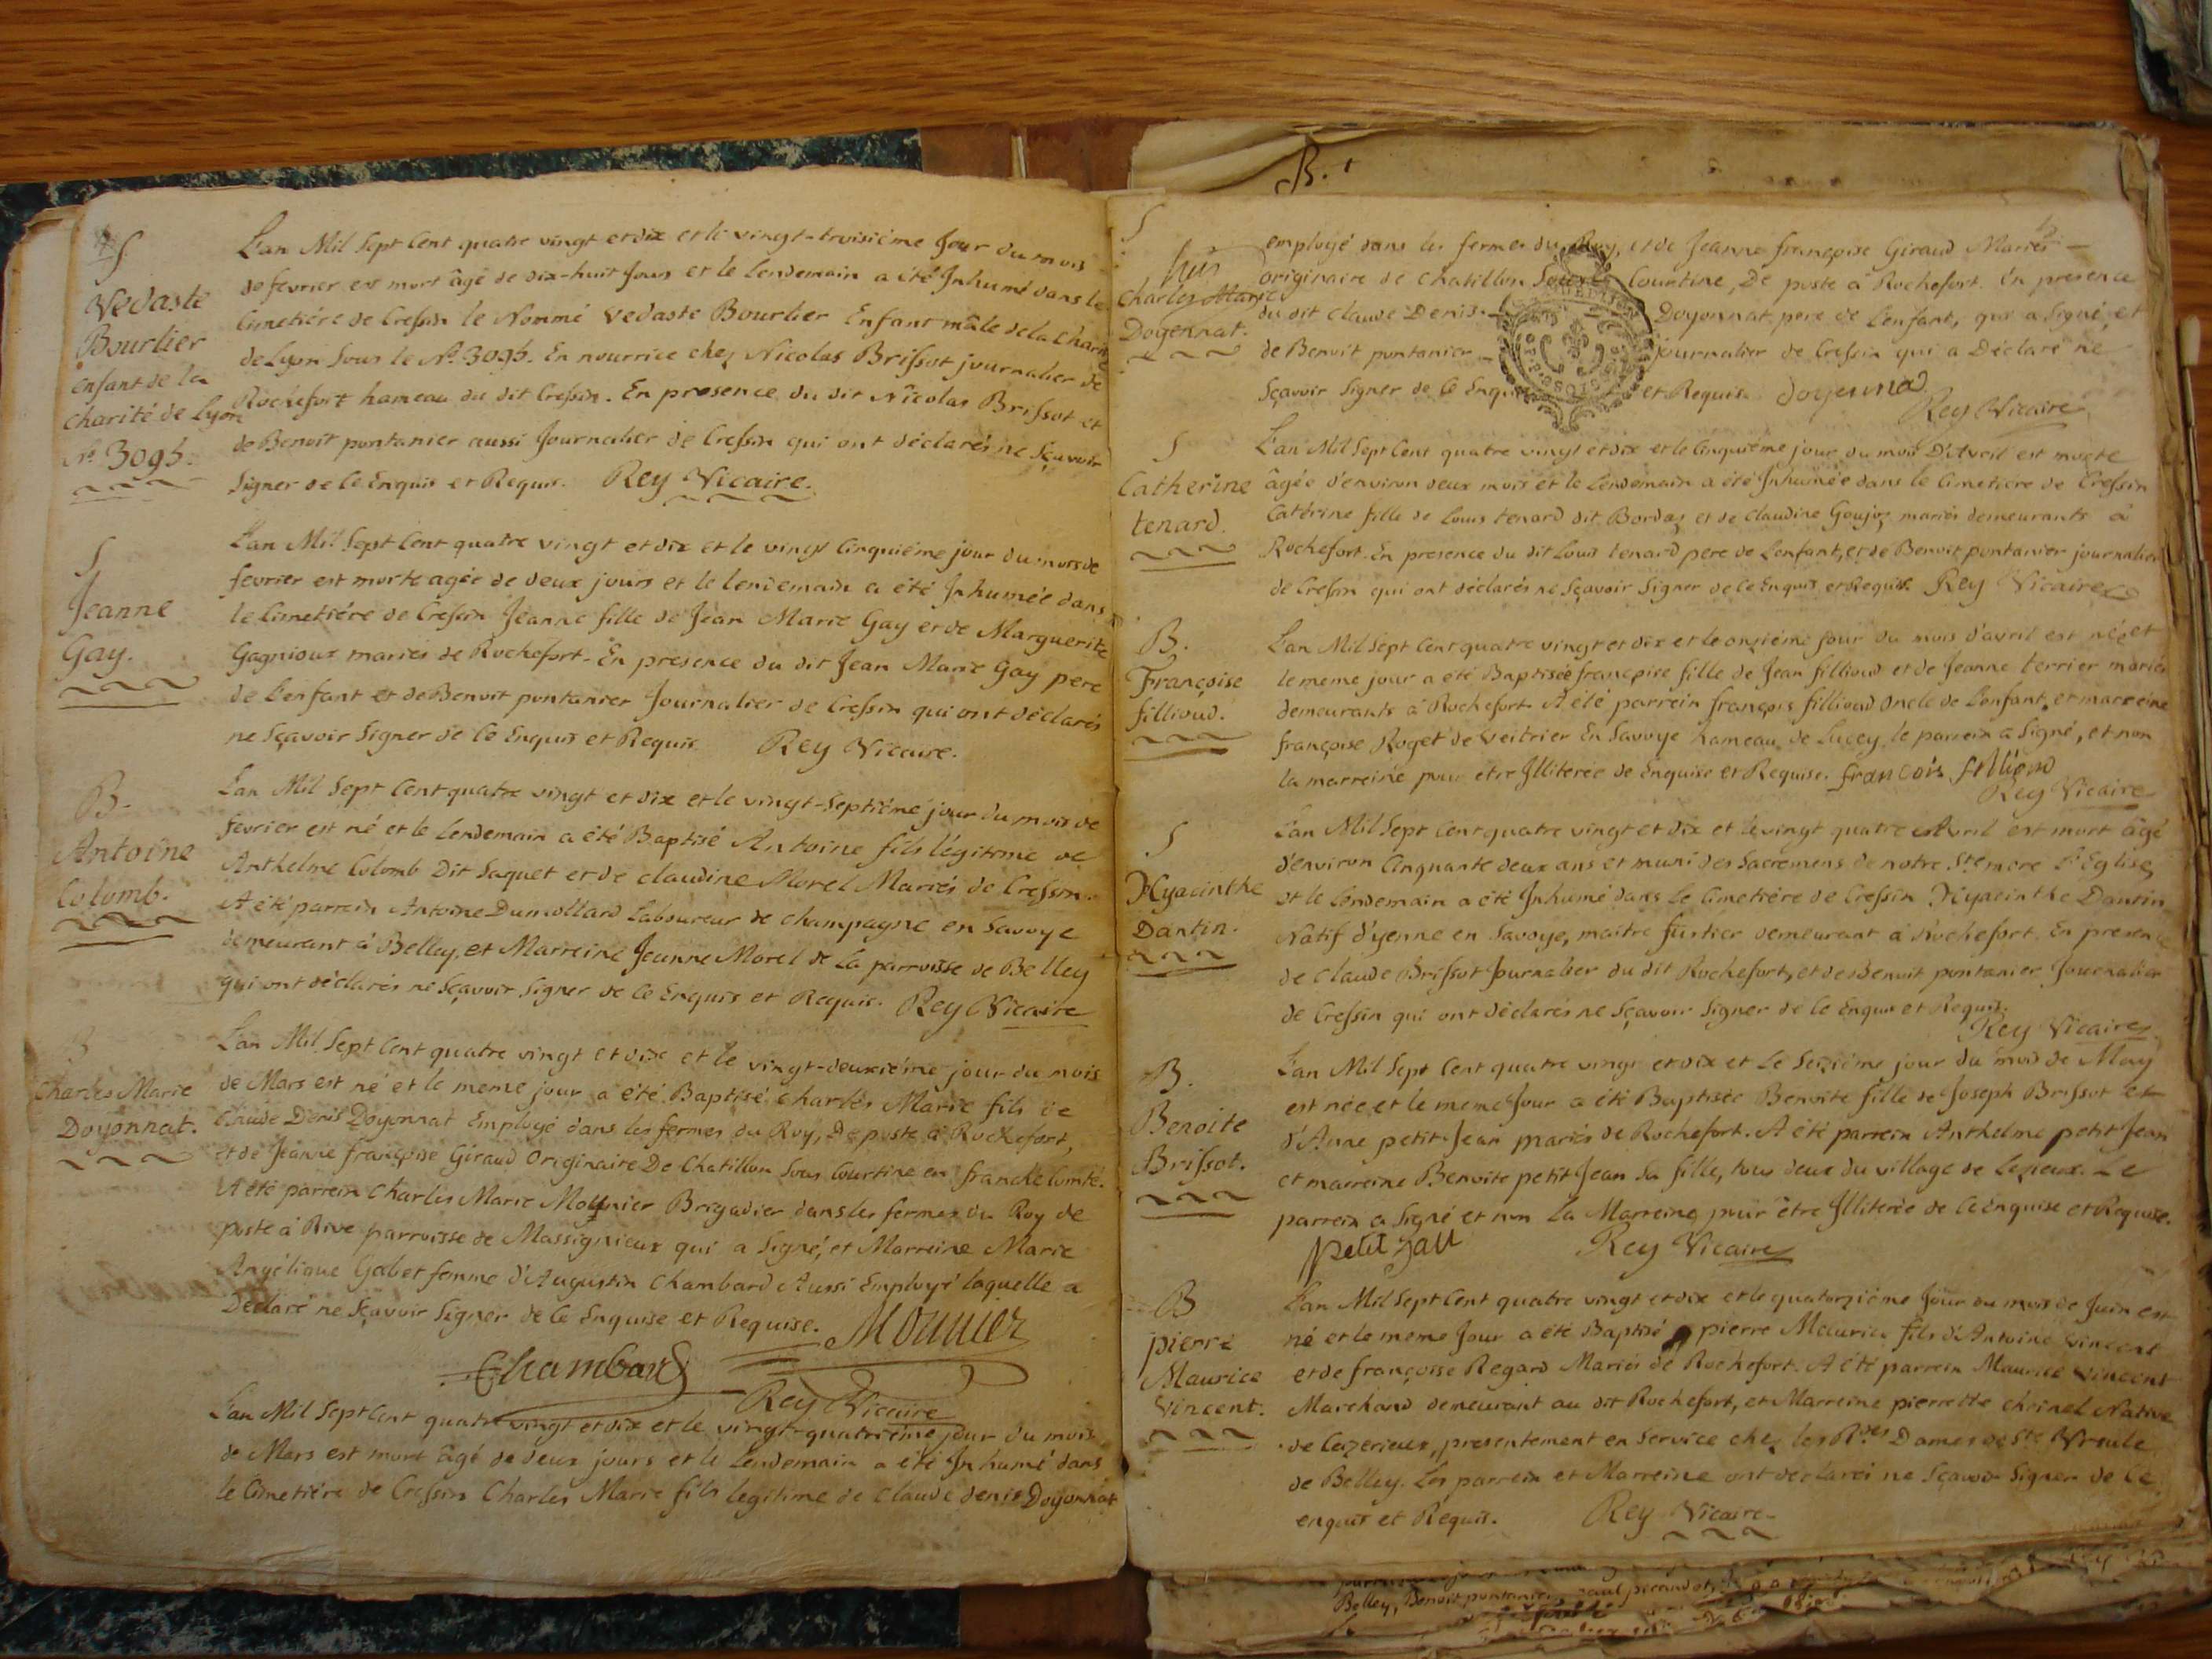 S
Vedaste
Bourlier
enfant de la
charité de Lyon
N.º 3095.
L'an Mil Sept Cent quatre vingt et dix et le vingt-troisiéme Jour du mois
de fevrier est mort âgé de dix-huit Jours et le Lendemain a été Inhumé dans le
Cimetiére de Cressin le Nommé Vedaste Bourlier Enfant mâle de la Charité
de Lyon Sous le N.º 3095. En nourrice chez Nicolas Brissot journalier de
Rochefort hameau du dit Cressin. En presence du dit Nicolas Brissot et
de Benoit pontanier aussi Journalier de Cressin qui ont déclarés ne Sçavoir
Signer de Ce Enquis et Requis. Rey Vicaire.
S
Jeanne
Gay.
L'an Mil Sept Cent quatre vingt et dix et le vingt Cinquiéme jour du mois de
fevrier est morte agée de deux jours et le lendemain a été Inhumée dans
le Cimetiére de Cressin Jeanne fille de Jean Marie Gay et de Marguerite
Gagnioux mariés de Rochefort. En presence du dit Jean Marie Gay pere
de l'enfant et de Benoit pontanier Journalier de Cressin qui ont déclarés
ne Sçavoir Signer de Ce Enquis et Requis. Rey Vicaire.
B.
Antoine
Colomb.
L'an Mil Sept Cent quatre vingt et dix et le vingt-Septiéme jour du mois de
fevrier est né et le Lendemain a été Baptisé Antoine fils légitime de
Anthelme Colomb Dit Saquet et de claudine Morel Mariés de Cressin.
A été parrein Antoine Dumollard Laboureur de champagne en Savoye
demeurant à Belley, et Marreine Jeanne Morel de la parroisse de Belley
qui ont déclarés ne Sçavoir Signer de Ce Enquis et Requis. Rey Vicaire
B
Charles Marie
Doyonnat.
L'an Mil Sept Cent quatre vingt et dix et le vingt-deuxiéme jour du mois
de Mars est né et le meme jour a été Baptisé charles Marie fils de
Claude Denis Doyonnat Employé dans les fermes du Roy, De poste à Rochefort,
et de Jeanne françoise Giraud Originaire De Chatillon Sous Courtine en franche Comté.
A été parrein Charles Marie Mounier Brigadier dans les fermes du Roy de
poste à Rive parroisse de Massignieux qui a Signé, et Marreine Marie
Angélique Gabet femme d'Augustin Chambard Aussi Employé laquelle a
Déclaré ne Sçavoir Signer de Ce Enquise et Requise. Mounier
Chambard
Rey Vicaire
L'an Mil Sept Cent quatre vingt et dix et le vingt-quatriéme jour du mois
de Mars est mort âgé de deux jours et le Lendemain a été Inhumé dans
le Cimetiére de Cressin Charles Marie fils legitime de Claude denis Doyonnat
B.
S
Charles Marie
Doyonnat.
employé dans les fermes du Roy, et de Jeanne françoise Giraud Mariés
originaire de Chatillon Sous Courtine, De poste à Rochefort. En presence
du dit Claude Denis Doyonnat pere de l'enfant, qui a Signé, et
de Benoit pontanier journalier de Cressin qui a Déclaré ne
Sçavoir Signer de Ce Enquis et Requis. doyonnat
Rey Vicaire
S
Catherine
tenard.
L'an Mil Sept Cent quatre vingt et dix et le Cinquiéme jour du mois D'Avril est morte
âgée d'environ deux mois et le Lendemain a été Inhumée dans le Cimetiére de Cressin
Catérine fille de Louis tenard dit Bordaz et de Claudine Goujoz mariés demeurants à
Rochefort. En presence du dit Louis tenard pere de l'enfant, et de Benoit pontanier journalier
de Cressin qui ont déclarés ne Sçavoir Signer de Ce Enquis et Requis. Rey Vicaire
B.
Françoise
fillioud.
L'an Mil Sept Cent quatre vingt et dix et le onziéme Jour du mois d'avril est née et
le meme jour a été Baptisée françoise fille de Jean fillioud et de Jeanne terrier mariés
demeurants à Rochefort. A été parrein françois fillioud Oncle de l'enfant, et marreine
françoise Roget de Veitrier En Savoye hameau de Lucey, le parrein a Signé, et non
la marreine pour être Illiterée de Enquise et Requise. françois fillioud
Rey Vicaire
S
Hyacinthe
Dantin.
L'an Mil Sept Cent quatre vingt et dix et le vingt quatre Avril est mort âgé
d'environ Cinquante deux ans et muni des Sacremens de notre Ste mere l'Eglise,
et le Lendemain a été Inhumé dans le Cimetiére de Cressin Hyacinthe Dantin
Natif d'yenne en Savoye, maitre fustier demeurant à Rochefort. En presence
de Claude Brissot Journalier du dit Rochefort, et de Benoit pontanier Journalier
de Cressin qui ont déclarés ne Sçavoir Signer de Ce Enquis et Requis.
Rey Vicaire
B.
Benoite
Brissot.
L'an Mil Sept Cent quatre vingt et dix et Le Seiziéme jour du mois de May
est née et le meme Jour a été Baptisée Benoite fille de Joseph Brissot et
d'Anne petit Jean mariés de Rochefort. A été parrein Anthelme petit Jean
et marreine Benoite petit Jean Sa fille, tous deux du village de Lezieux. Le
parrein a Signé et non la Marreine pour être Illiterée de Ce Enquise et Requise.
petit Jan Rey Vicaire
B
pierre
Maurice
Vincent.
L'an Mil Sept Cent quatre vingt et dix et le quatorziéme Jour du mois de Juin est
né et le meme Jour a été Baptisé pierre Maurice fils d'Antoine Vincent
et de françoise Regard Mariés de Rochefort. A été parrein Maurice Vincent
Marchand demeurant au dit Rochefort, et Marreine pierrette Chrinel Native
de Cuzerieux, presentement en Service chez les Rdes Dames de Ste Ursule
de Belley. Les parrein et Marreine ont déclarés ne Sçavoir Signer de Ce
enquis et Requis. Rey Vicaire
Belley, Benoit pontanier